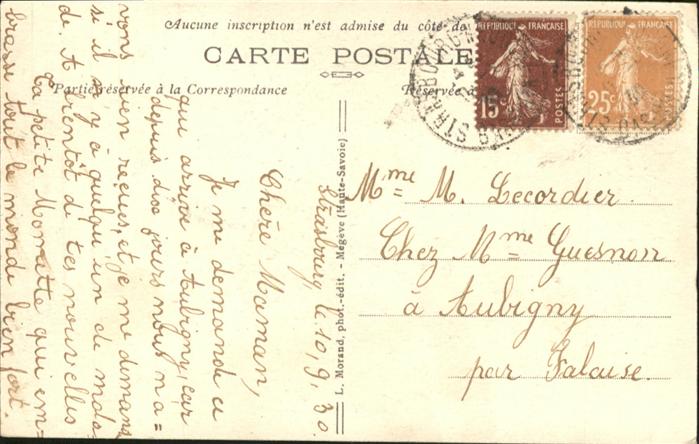 Aucune inscription n'est admise du côté de
CARTE POSTALE
Partie réservée à la Correspondance
Réservée à
RÉPUBLIQUE FRANÇAISE
15c
POSTES
RÉPUBLIQUE FRANÇAISE
25c
POSTES
STRASBOURG
L. Morand, phot.-édit. - Megève (Haute-Savoie)
Strasbourg, le 10, 9, 30.
Chère Maman,
Je me demande ce
qui arrive à Aubigny, car
depuis dix jours nous n'a=
vons rien reçues, et je me demans
si il n'y a quelqu'un de mala=
de. A bientôt de tes nouvelles
ta petite Monette qui em-
brasse tout le monde bien fort.
Mme M. Lecordier
Chez Mme Guesnon
à Aubigny
par Falaise.